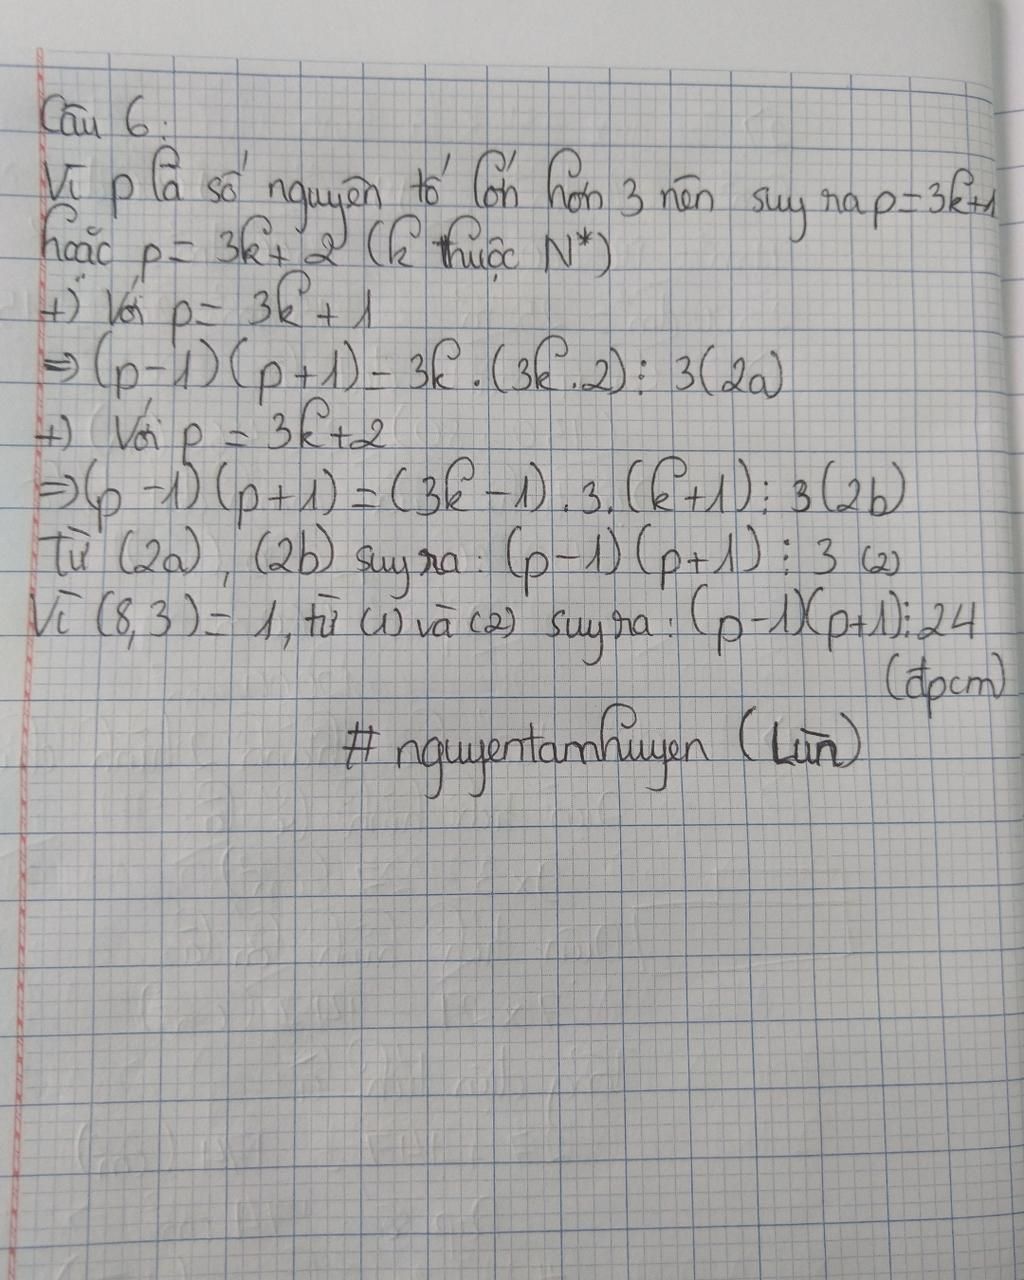 Câu 6:
Vì p là số nguyên tố lớn hơn 3 nên suy ra p = 3k+1
hoặc p = 3k + 2 (k thuộc N*)
+) Với p = 3k + 1
⇒ (p-1)(p+1) = 3k . (3k . 2) ⋮ 3 (2a)
+) Với p = 3k+2
⇒ (p -1)(p+1) = (3k -1) . 3. (k+1) ⋮ 3 (2b)
Từ (2a), (2b) suy ra: (p-1)(p+1) ⋮ 3 (2)
Vì (8,3) = 1, từ (1) và (2) suy ra: (p-1)(p+1) ⋮ 24
(đpcm)
# nguyentamhuyen (Lùn)